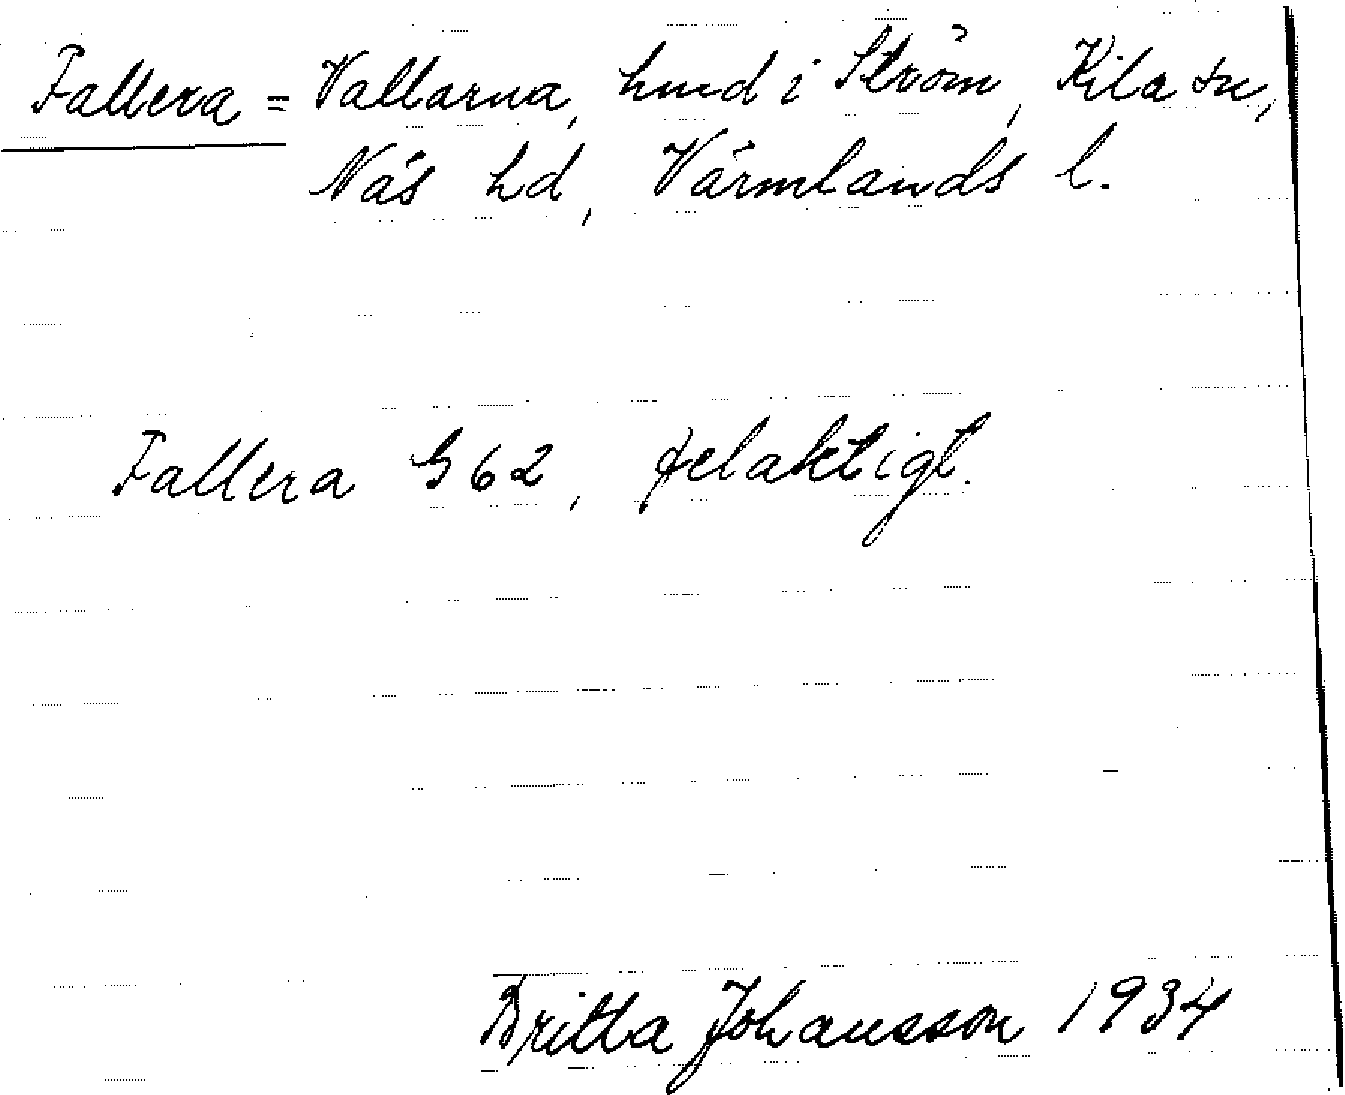 Fallera = Vallarna, hmd i Ström, Kila sn,
Näs hd, Värmlands l.
Fallera G62, felaktigt.
Britta Johansson 1934